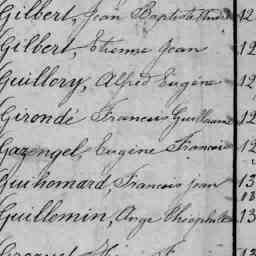 Gilbert, Jean Baptiste 12
Gilbert, Etienne Jean 12
Guillory, Alfred Eugène 12
Girondé Francois Guillaume 12
Gazengel, Eugène Francois 12
Guihomard, Francois Jean 13
Guillemin, Ange Théophile 13